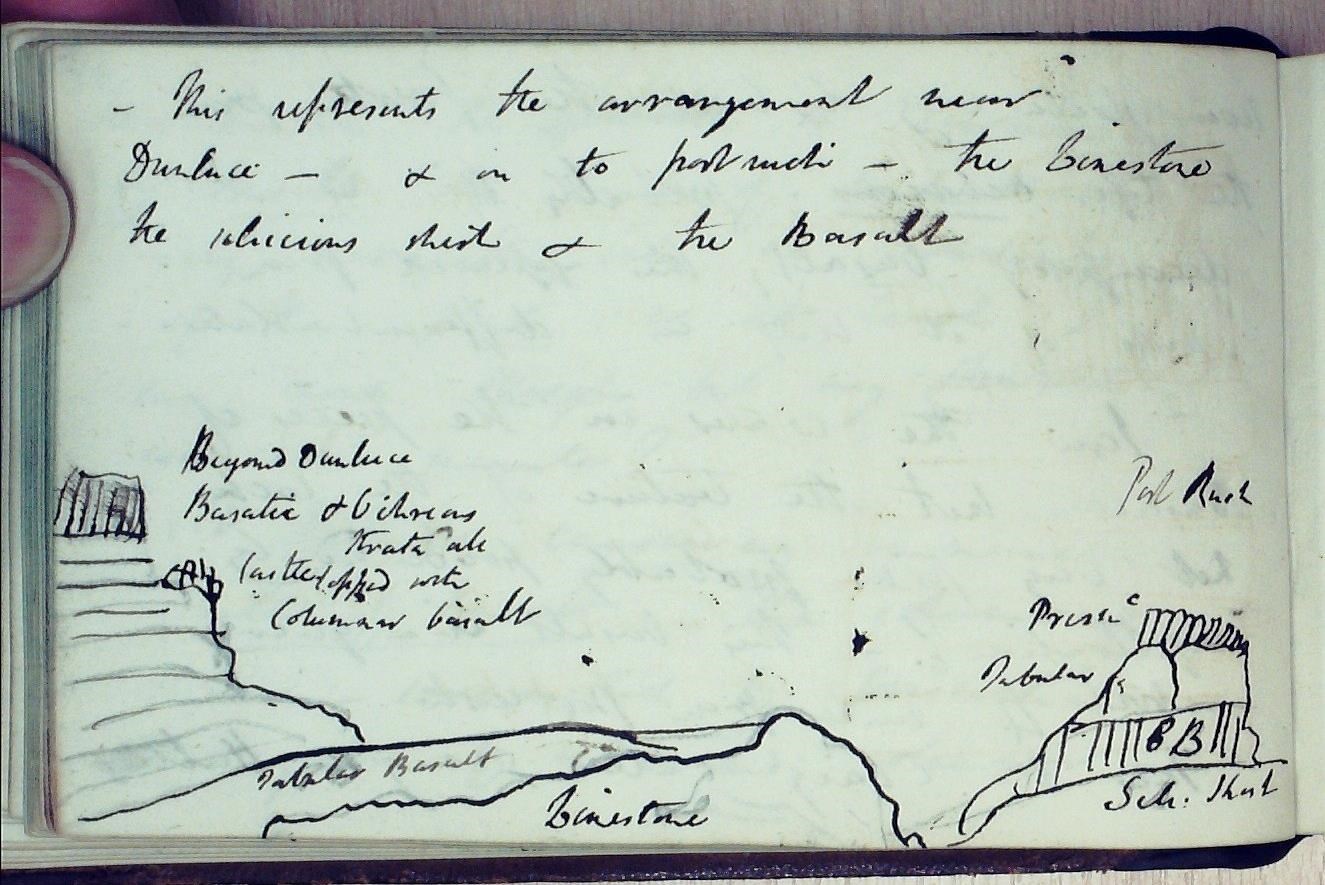 - This represents the arrangement near
Dunluce - & on to portrush - the Limestone
the silicious shist & the Basalt
Beyond Dunluce
Basatic & Ochreous
Strata all
Castle topped with
Columnar basalt
Port Rush
Prism^c
Tabular
BB
Tabular Basalt
Limestone
Sili: Shist